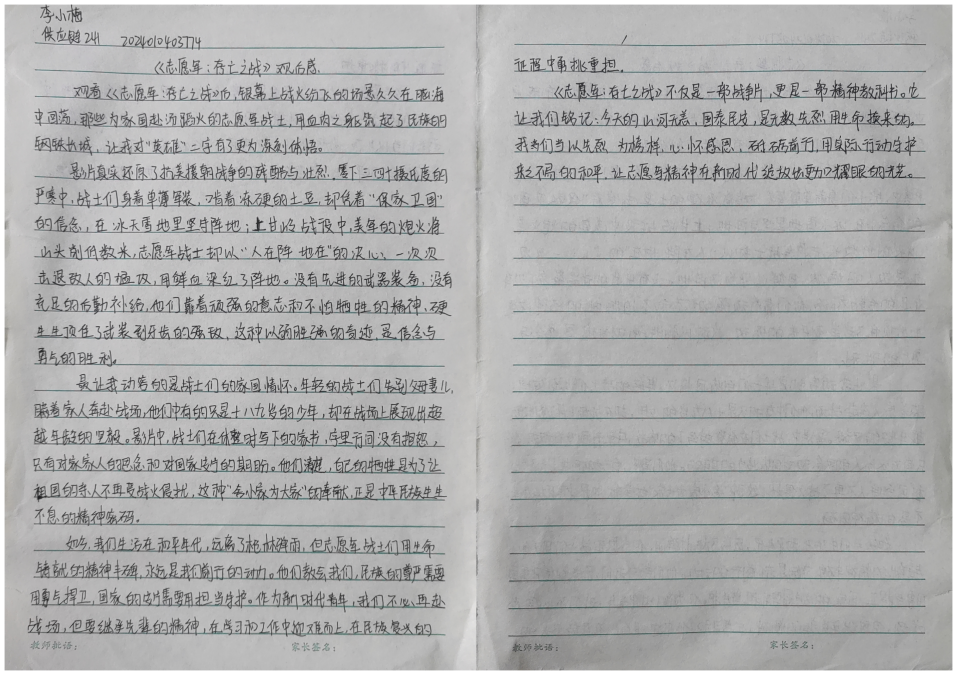 李小梅
供应链241 2024010403774
《志愿军:存亡之战》观后感
观看《志愿军:存亡之战》后,银幕上战火纷飞的场景久久在脑海
中回荡,那些为家国赴汤蹈火的志愿军战士,用血肉之躯筑起了民族的
钢铁长城,让我对“英雄”二字有了更为深刻体悟。
影片真实还原了抗美援朝战争的残酷与壮烈。零下三四十摄氏度的
严寒中,战士们身着单薄军装,啃着冻硬的土豆,却凭着“保家卫国”
的信念,在冰天雪地里坚守阵地;上甘岭战役中,美军的炮火将
山头削低数米,志愿军战士却以“人在阵地在”的决心、一次次
击退敌人的猛攻,用鲜血染红了阵地。没有先进的武器装备,没有
充足的后勤补给,他们靠着顽强的意志和不怕牺牲的精神,硬
生生顶住了武装到牙齿的强敌,这种以弱胜强的奇迹,是信念与
勇气的胜利。
最让我动容的是战士们的家国情怀。年轻的战士们告别父母妻儿,
瞒着家人奔赴战场,他们中有的只是十八九岁的少年,却在战场上展现出超
越年龄的坚毅。影片中,战士们在休整时写下的家书,字里行间没有抱怨,
只有对家家人的思念和对国家安宁的期盼。他们清楚,自己的牺牲是为了让
祖国的亲人不再受战火侵扰,这种“舍小家为大家”的奉献,正是中华民族生生
不息的精神密码。
如今,我们生活在和平年代,远离了枪林弹雨,但志愿军战士们用生命
铸就的精神丰碑,永远是我们前行的动力。他们教会我们,民族的尊严需要
用勇气捍卫,国家的安宁需要用担当守护。作为新时代青年,我们不必再赴
战场,但要继承先辈的精神,在学习和工作中迎难而上,在民族复兴的
教师批语: 家长签名:
征程中勇挑重担。
《志愿军:存亡之战》不仅是一部战争片,更是一部精神教科书。它
让我们铭记:今天的山河无恙,国泰民安,是无数先烈用生命换来的。
我们当以先烈为榜样,心怀感恩,砥砺前行,用实际行动守护
来之不易的和平,让志愿军精神在新时代绽放出更加耀眼的光芒。
教师批语: 家长签名: